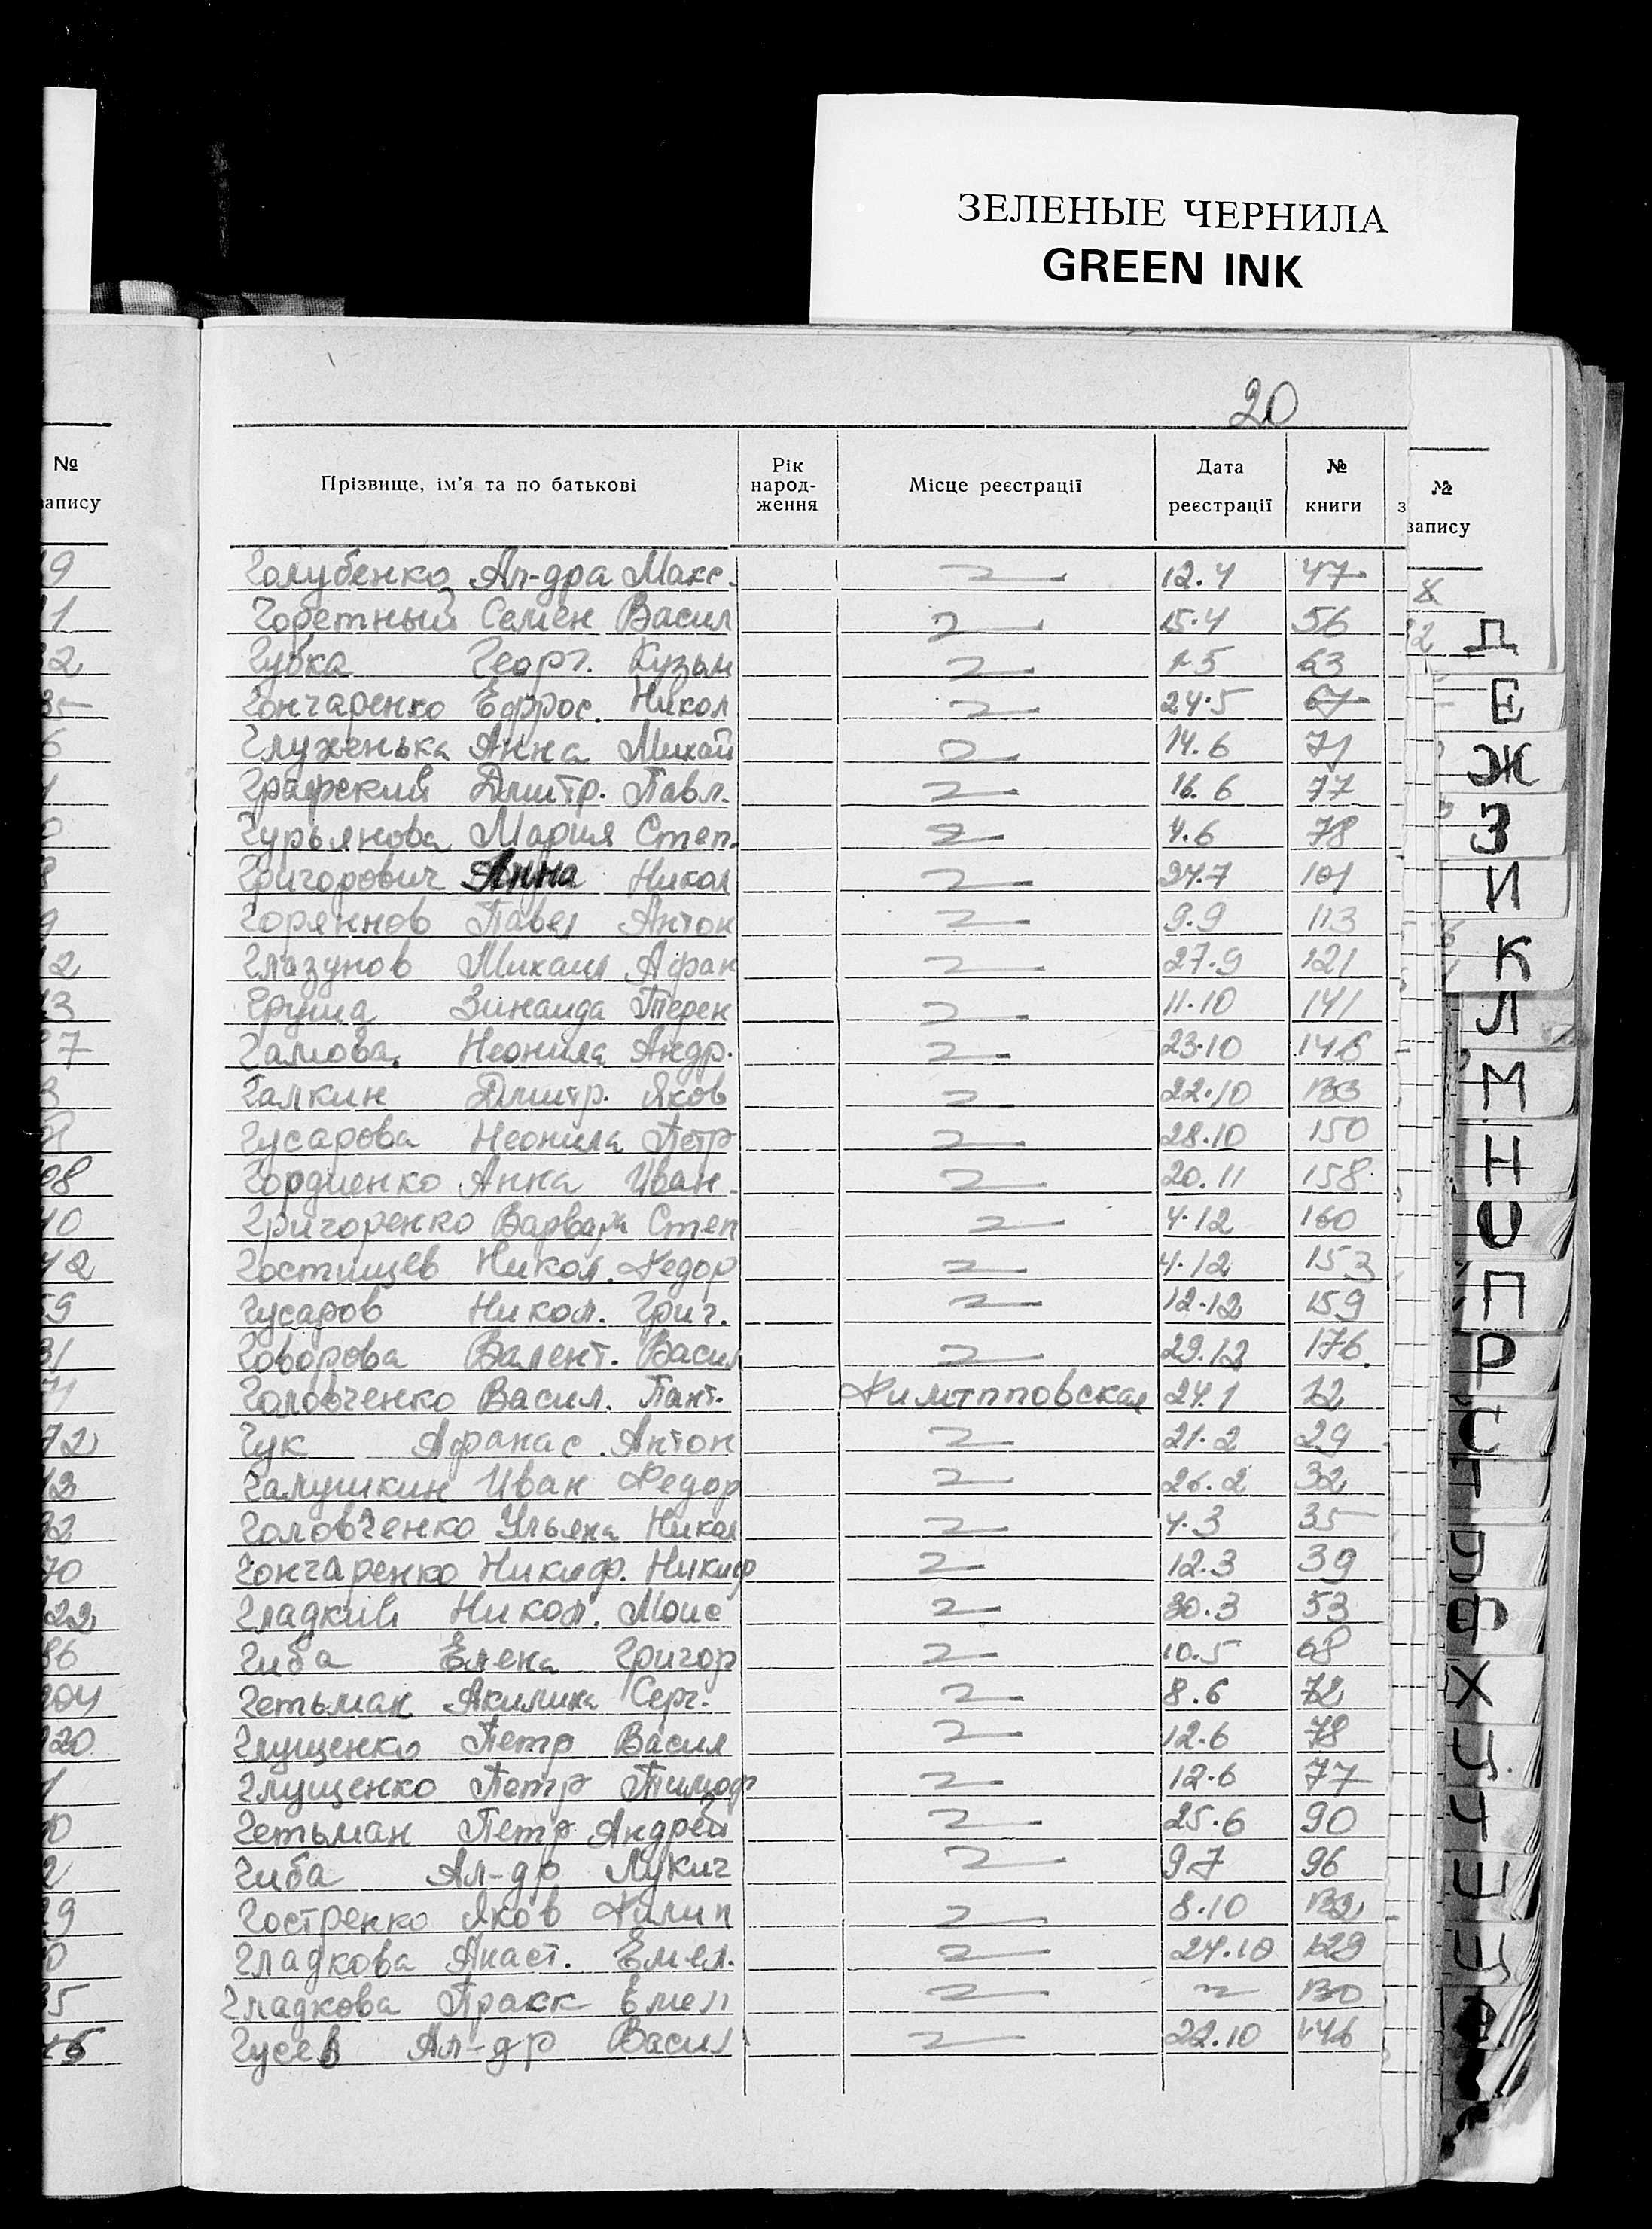 ЗЕЛЕНЫЕ ЧЕРНИЛА
GREEN INK
20
№ запису
Прізвище, ім'я та по батькові
Рік народ-ження
Місце реєстрації
Дата реєстрації
№ книги
№ запису
Голубенко Ал-дра Макс. 12.4 47
Горетный Семен Васил 15.4 56
Губка Георг. Кузьм 1.5 63
Гончаренко Ефрос. Никол 24.5 67
Глуженька Анна Михай 14.6 71
Графский Дмитр. Павл. 16.6 77
Гурьянова Мария Степ. 4.6 78
Григорович Анна Никол 24.7 101
Горяннов Павел Антон 9.9 113
Глазунов Михаил Афан 27.9 121
Груша Зинаида Терен 11.10 141
Галиова Неонила Андр. 23.10 146
Галкин Дмитр. Яков 22.10 133
Гусарова Неонила Петр 28.10 150
Гордиенко Анна Иван. 20.11 158
Григоренко Варвара Степ 4.12 160
Гостищев Никол. Федор 4.12 153
Гусаров Никол. Григ. 12.12 159
Говорова Валент. Васил 29.12 176
Головченко Васил. Пант. 24.1 12
Гук Афанас. Антон 21.2 29
Галушкин Иван Федор 26.2 32
Головченко Ульяна Никол 4.3 35
Гончаренко Никиф. Никиф 12.3 39
Гладкий Никол. Моис 30.3 53
Гиба Елена Григор 10.5 68
Гетьман Акилина Серг. 8.6 72
Глущенко Петр Васил 12.6 78
Глущенко Петр Тимоф 12.6 77
Гетьман Петр Андрей 25.6 90
Гиба Ал-др Лукич 9.7 96
Гостренко Яков Филип 8.10 132
Гладкова Анаст. Емел. 24.10 129
Гладкова Пракк Емел 130
Гусев Ал-др Васил 22.10 146
Д
Е
Ж
З
И
К
Л
М
Н
О
П
Р
С
Т
У
Ф
Х
Ц
Ч
Ш
Щ